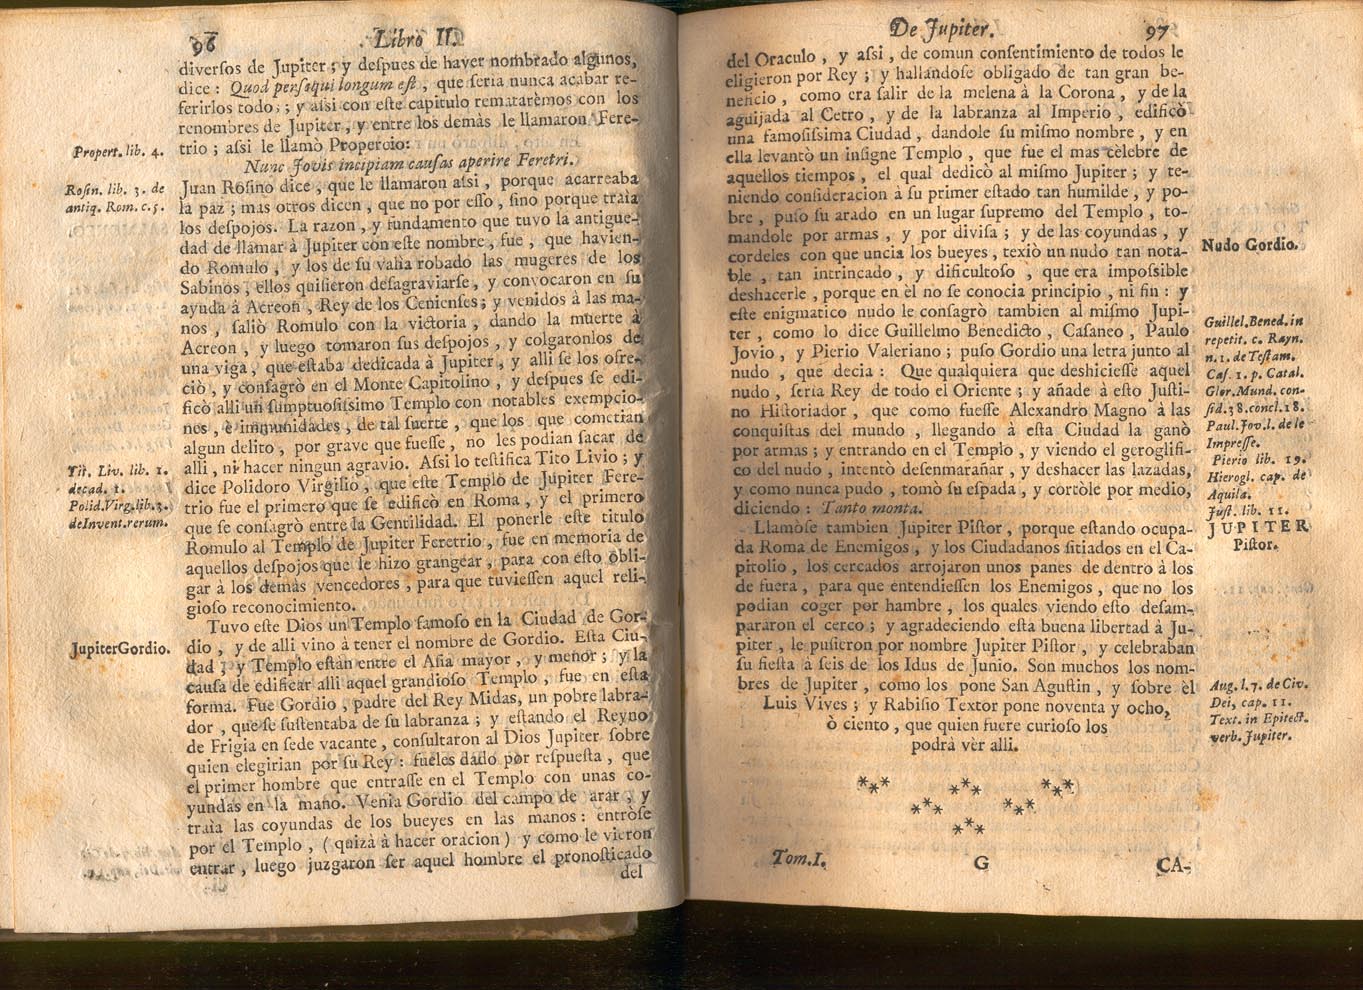 96
Libro II.
diversos de Jupiter; y despues de haver nombrado algunos,
dice: Quod persequi longum est, que seria nunca acabar re-
ferirlos todos; y assi con este capitulo rematarèmos con los
renombres de Jupiter, y entre los demàs le llamaron Fere-
trio; assi le llamò Propercio:
Propert. lib. 4.
Nunc Jovis incipiam causas aperire Feretri.
Juan Rosino dice, que le llamaron assi, porque acarreaba
Rosin. lib. 3. de
antiq. Rom. c. 5.
la paz; mas otros dicen, que no por esso, sino porque traìa
los despojos. La razon, y fundamento que tuvo la antigue-
dad de llamar à Jupiter con este nombre, fue, que havien-
do Romulo, y los de su valìa robado las mugeres de los
Sabinos, ellos quisieron desagraviarse, y convocaron en su
ayuda à Acreon, Rey de los Cenienses; y venidos à las ma-
nos, saliò Romulo con la victoria, dando la muerte à
Acreon, y luego tomaron sus despojos, y colgaronlos de
una viga, que estaba dedicada à Jupiter, y alli se los ofre-
ciò, y consagrò en el Monte Capitolino, y despues se edi-
ficò alli un sumptuosissimo Templo con notables exempcio-
nes, è immunidades, de tal suerte, que los que cometian
algun delito, por grave que fuesse, no les podian sacar de
alli, ni hacer ningun agravio. Assi lo testifica Tito Livio; y
Tit. Liv. lib. 1.
decad. 1.
Polid. Virg. lib. 3.
de Invent. rerum.
dice Polidoro Virgilio, que este Templo de Jupiter Fere-
trio fue el primero que se edificò en Roma, y el primero
que se consagrò entre la Gentilidad. El ponerle este titulo
Romulo al Templo de Jupiter Feretrio, fue en memoria de
aquellos despojos que le hizo grangear, para con esto obli-
gar à los demàs vencedores, para que tuviessen aquel reli-
gioso reconocimiento.
Tuvo este Dios un Templo famoso en la Ciudad de Gor-
Jupiter Gordio.
dio, y de alli vino à tener el nombre de Gordio. Esta Ciu-
dad, y Templo estàn entre el Asia mayor, y menor; y la
causa de edificar alli aquel grandioso Templo, fue en esta
forma. Fue Gordio, padre del Rey Midas, un pobre labra-
dor, que se sustentaba de su labranza; y estando el Reyno
de Frigia en sede vacante, consultaron al Dios Jupiter sobre
quien elegirian por su Rey: fueles dado por respuesta, que
el primer hombre que entrasse en el Templo con unas co-
yundas en la mano. Venia Gordio del campo de arar, y
traìa las coyundas de los bueyes en las manos: entròse
por el Templo, (quizà à hacer oracion) y como le vieron
entrar, luego juzgaron ser aquel hombre el pronosticado
del
De Jupiter.
97
del Oraculo, y assi, de comun consentimiento de todos le
eligieron por Rey; y hallandose obligado de tan gran be-
neficio, como era salir de la melena à la Corona, y de la
aguijada al Cetro, y de la labranza al Imperio, edificò
una famosissima Ciudad, dandole su mismo nombre, y en
ella levantò un insigne Templo, que fue el mas cèlebre de
aquellos tiempos, el qual dedicò al mismo Jupiter; y te-
niendo consideracion à su primer estado tan humilde, y po-
bre, puso su arado en un lugar supremo del Templo, to-
mandole por armas, y por divisa; y de las coyundas, y
Nudo Gordio.
cordeles con que uncia los bueyes, texiò un nudo tan nota-
ble, tan intrincado, y dificultoso, que era impossible
deshacerle, porque en èl no se conocia principio, ni fin: y
este enigmatico nudo le consagrò tambien al mismo Jupi-
ter, como lo dice Guillelmo Benedicto, Casaneo, Paulo
Jovio, y Pierio Valeriano; puso Gordio una letra junto al
nudo, que decia: Que qualquiera que deshiciesse aquel
nudo, seria Rey de todo el Oriente; y añade à esto Justi-
no Historiador, que como fuesse Alexandro Magno à las
conquistas del mundo, llegando à esta Ciudad la ganò
por armas; y entrando en el Templo, y viendo el gerogliſi-
co del nudo, intentò desenmarañar, y deshacer las lazadas,
y como nunca pudo, tomò su espada, y cortòle por medio,
diciendo: Tanto monta.
Guillel. Bened. in
repetit. c. Rayn.
n. 1. de Testam.
Cas. 1. p. Catal.
Glor. Mund. con-
sid. 38. concl. 18.
Paul. Jov. l. de le
Impresse.
Pierio lib. 19.
Hierogl. cap. de
Aquila.
Just. lib. 11.
Llamòse tambien Jupiter Pistor, porque estando ocupa-
JUPITER
Pistor.
da Roma de Enemigos, y los Ciudadanos sitiados en el Ca-
pitolio, los cercados arrojaron unos panes de dentro à los
de fuera, para que entendiessen los Enemigos, que no los
podian coger por hambre, los quales viendo esto desam-
pararon el cerco; y agradeciendo esta buena libertad à Ju-
piter, le pusieron por nombre Jupiter Pistor, y celebraban
su fiesta à seis de los Idus de Junio. Son muchos los nom-
bres de Jupiter, como los pone San Agustin, y sobre èl
Luis Vives; y Rabisio Textor pone noventa y ocho,
ò ciento, que quien fuere curioso los
podrà vèr alli.
Aug. l. 7. de Civ.
Dei, cap. 11.
Text. in Epitect.
verb. Jupiter.
Tom. I.
G
CA-